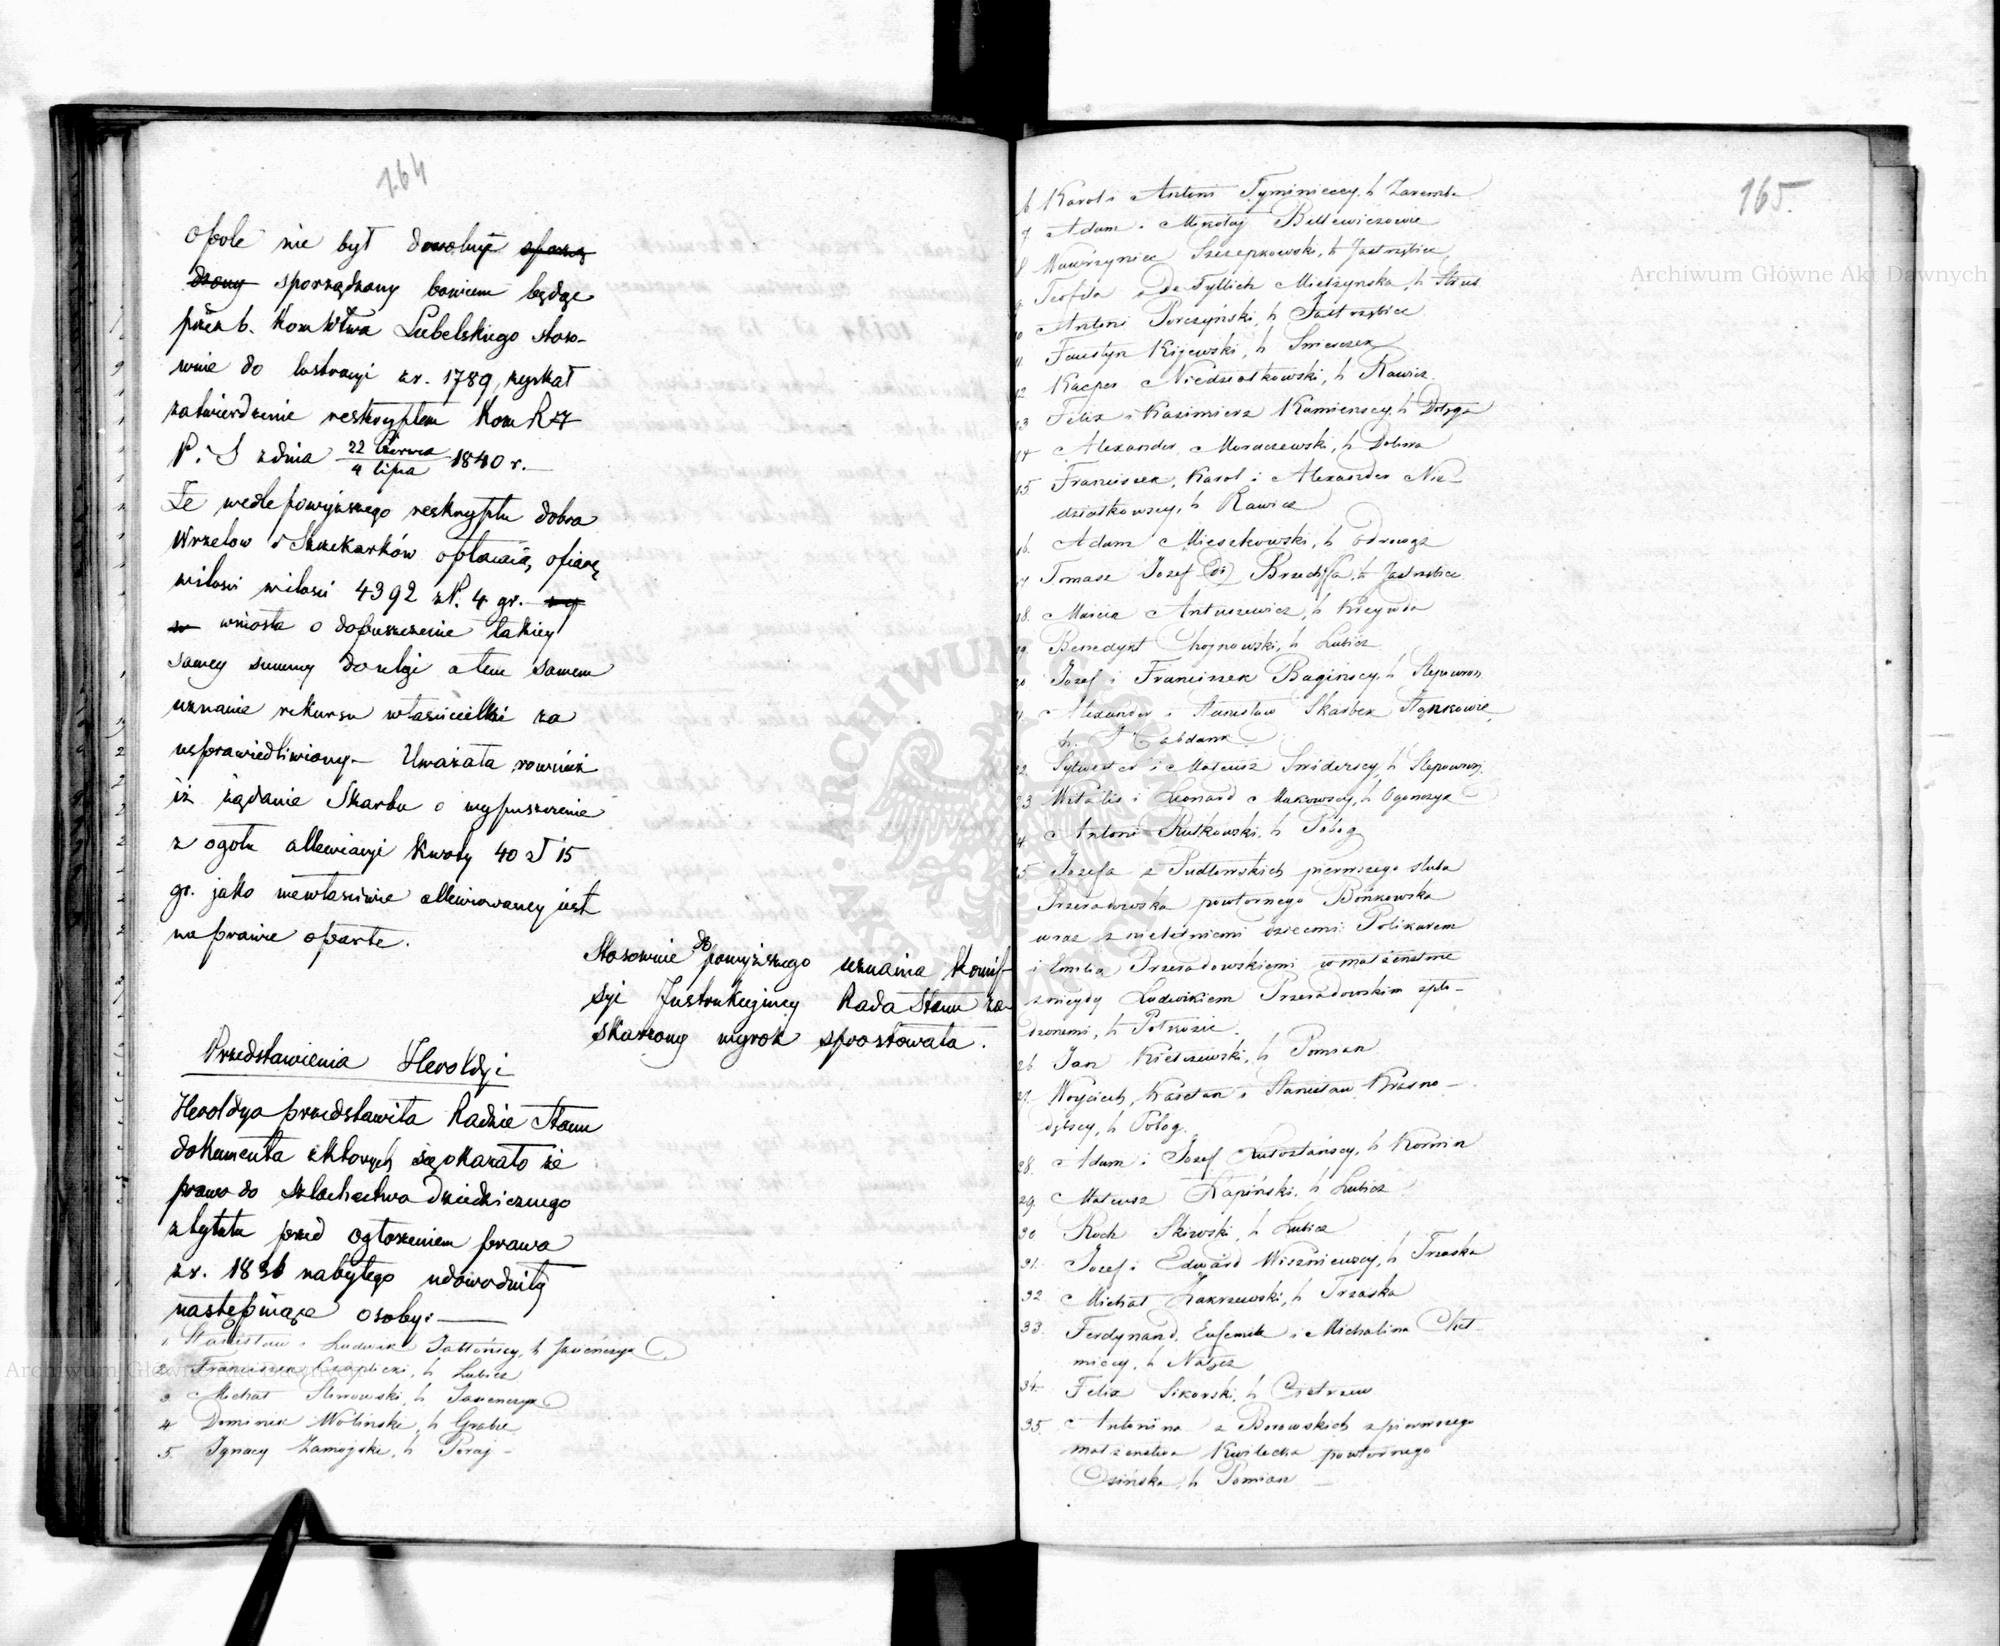 164
opole nie był dowolnie sporzą
dzony sporządzony bowiem będąc
przez b. Kom Wttwa Lubelskiego stoso-
wnie do lustracyi z r. 1789, zyskał
zatwierdzenie reskryptem Kom R
P. i S z dnia 22 Czerwca / 4 lipca 1840 r.
Że wedle powyższego reskryptu dobra
Wrzelow i Szczekarków opłacają ofiarę
w ilości w ilości 4392 zł. 4 gr.
wniosła o dopuszczenie takiey
samey summy do ulgi a tem samem
uznanie rekursu właścicielki za
usprawiedliwiony – Uważała rownież
iż żądanie Skarbu o wypuszczenie
z ogołu allewiacyi kwoty 40 zł 15
gr. jako niewłaściwie allewiowaney jest
na prawie oparte.
Stosownie do powyższego uznania Komis-
syi Instrukcyiney Rada Stanu za-
skarżony wyrok sprostowała.
Przedstawienia Heroldyi
Heroldya przedstawiła Radzie Stanu
dokumenta z ktorych się okazało że
prawo do szlachectwa dziedzicznego
z tytułu przed ogłoszeniem prawa
z r. 1836 nabytego udowodniły
następujące osoby:
1. Stanisław i Ludwik Jabłońscy, h Jasieńczyk
2. Franciszek Czaplicki, h Lubicz
3 Michał Sliwowski, h Jasienczyk
4 Dominik Woliński, h Grabie
5. Ignacy Zamojski, h Poraj –
165.
6 Karol i Antoni Tyminieccy, h Zaremba
7 Adam i Mikołaj Billewiczowie
8 Wawrzyniec Szczepkowski, h Jastrzębiec
9 Teofila de Tyllich Mielżynska, h Strus
10 Antoni Porczyński, h Jastrzębiec
11 Faustyn Kijewski, h
12 Kacper Niedziałkowski, h Rawicz.
13 Felix i Kazimierz Kamienscy, h Dołęga
14 Alexander Moraczewski, h
15 Franciszek, Karol i Alexander Nie-
działkowscy, h Rawicz
16. Adam Mieszkowski, h Odrowąż
17 Tomasz Jozef (2i) Brzechffa, h Jastrzebiec
18. Marcin Antuszewicz, h Krzywda
19. Benedykt Chojnowski, h Lubicz
20 Jozef i Franciszek Baginscy, h Slepowron
21. Alexander i Stanisław Skarbek
h. Habdank
22. Sylwester i Mateusz Swiderscy, h Slepowron.
23 Witalis i Leonard Makowscy, h Ogonczyk
24. Antoni Rutkowski, h Pobog
25 Jozefa z Pudłowskich pierwszego slubu
Przeradowska powtornego Bońkowska
wraz z nieletniemi dziecmi Polikarem
i Emilią Przeradowskiemi w małżenstwie
z niegdy Ludwikiem Przeradowskim spło-
dzonemi, h Połkozic.
26. Jan Kiełczewski, h Pomian
27. Woyciech, Kajetan i Stanisław Krasno-
dębscy, h Pobog.
28. Adam i Jozef Lutostańscy, h Korwin
29. Mateusz Łapiński, h Lubicz
30 Roch Skiwski, h Lubicz
31. Jozef i Edward Wiszniewscy, h Trzaska
32. Michał Zakrzewski, h Trzaska
33. Ferdynand, Eufemik i Michalina Cheł-
miccy, h Nałęcz
34. Felix Sikorski, h Cietrzew
35. Antonina z Borowskich z pierwszego
małzenstwa Kwilecka powtornego
Osińska, h Pomian –
Archiwum Główne Akt Dawnych
Archiwum Główne Akt Dawnych